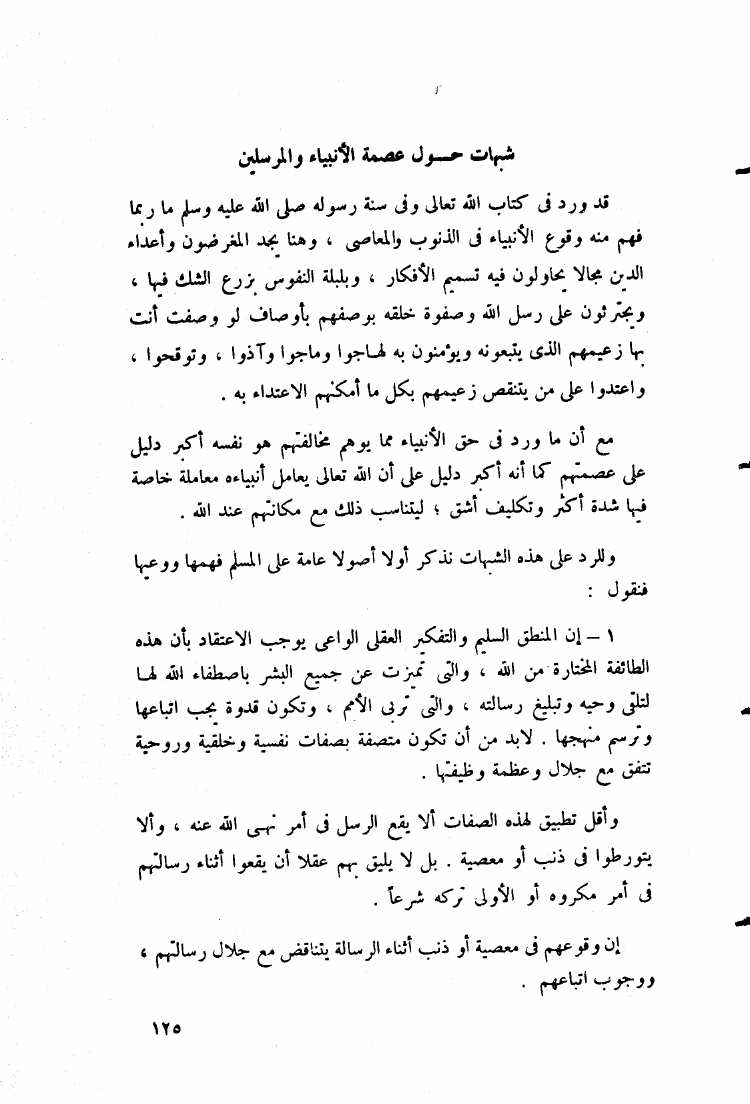 شبهات حــول عصمة الأنبياء والمرسلين
قد ورد فى كتاب الله تعالى وفى سنة رسوله صلى الله عليه وسلم ما ربما
فهم منه وقوع الأنبياء فى الذنوب والمعاصى ، وهنا يجد المغرضون وأعداء
الدين مجالا يحاولون فيه تسميم الأفكار ، وبلبلة النفوس بزرع الشك فيها ،
ويجترئون على رسل الله وصفوة خلقه بوصفهم بأوصاف لو وصفت أنت
بها زعيمهم الذى يتبعونه ويؤمنون به لهاجوا وماجوا وآذوا ، وتوقحوا ،
واعتدوا على من يتنقص زعيمهم بكل ما أمكنهم الاعتداء به .
مع أن ما ورد فى حق الأنبياء مما يوهم مخالفتهم هو نفسه أكبر دليل
على عصمتهم كما أنه أكبر دليل على أن الله تعالى يعامل أنبياءه معاملة خاصة
فيها شدة أكثر وتكليف أشق ؛ ليتناسب ذلك مع مكانتهم عند الله .
وللرد على هذه الشبهات نذكر أولا أصولا عامة على المسلم فهمها ووعيها
فنقول :
١ – إن المنطق السليم والتفكير العقلى الواعى يوجب الاعتقاد بأن هذه
الطائفة المختارة من الله ، والتى تميزت عن جميع البشر باصطفاء الله لهـا
لتلقى وحيه وتبليغ رسالته ، والتى تربى الأمم ، وتكون قدوة يجب اتباعها
وترسم منهجها . لابد من أن تكون متصفة بصفات نفسية وخلقية وروحية
تتفق مع جلال وعظمة وظيفتها .
وأقل تطبيق لهذه الصفات ألا يقع الرسل فى أمر نهـى الله عنه ، وألا
يتورطوا فى ذنب أو معصية . بل لا يليق بهم عقلا أن يقعوا أثناء رسالتهم
فى أمر مكروه أو الأولى تركه شرعاً .
إن وقوعهم فى معصية أو ذنب أثناء الرسالة يتناقض مع جلال رسالتهم ،
ووجوب اتباعهم .
١٢٥